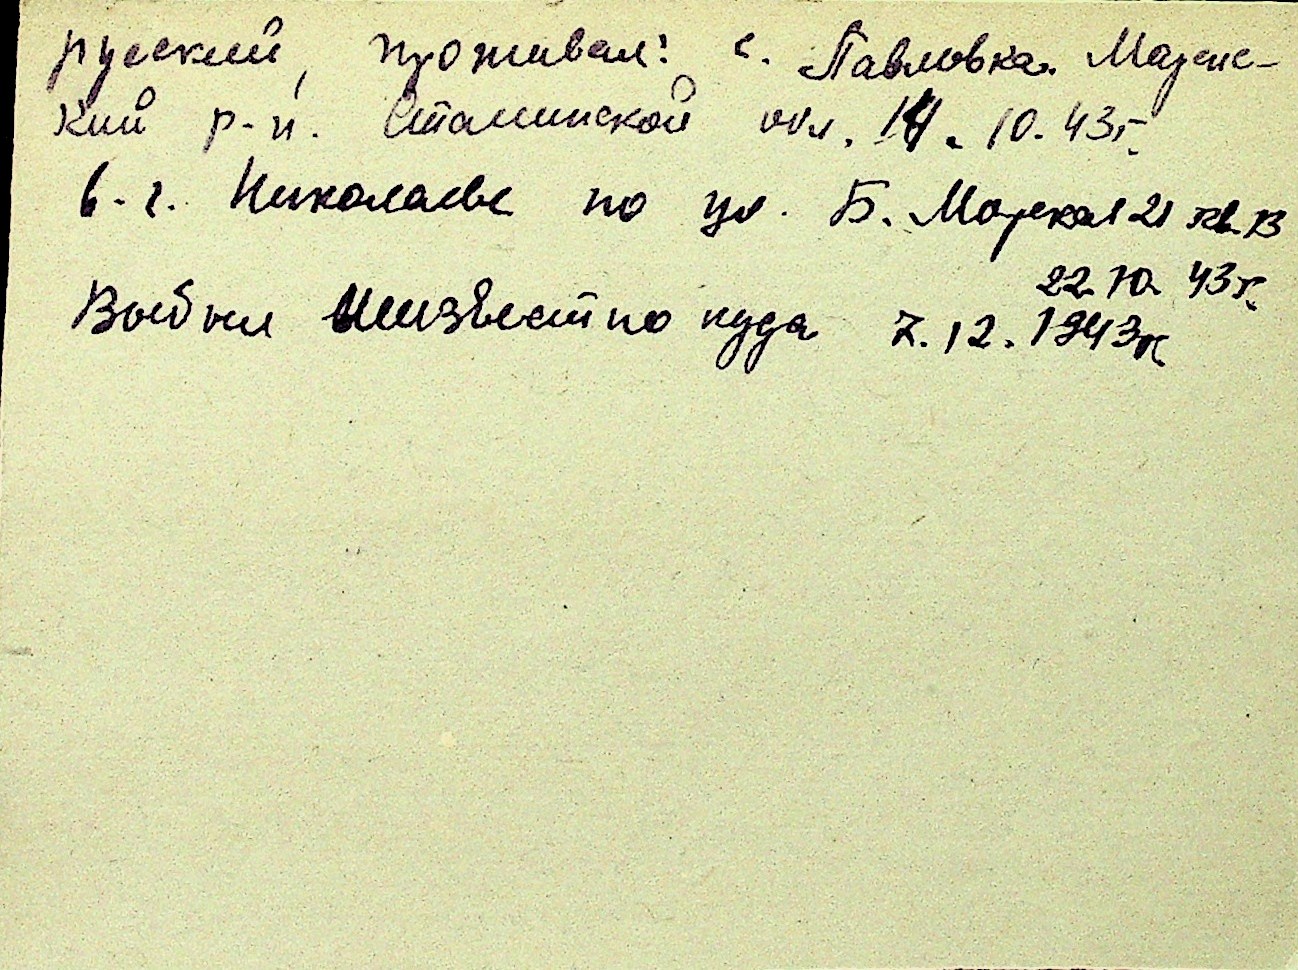 русский, проживал: с. Павловка. Марьинс-
кий р-н. Сталинской обл. 14. 10. 43г.
в. г. Николаеве по ул. Б. Морская 21 кв. 13
22. 10. 43г.
Выбыл неизвестно куда 7. 12. 1943г